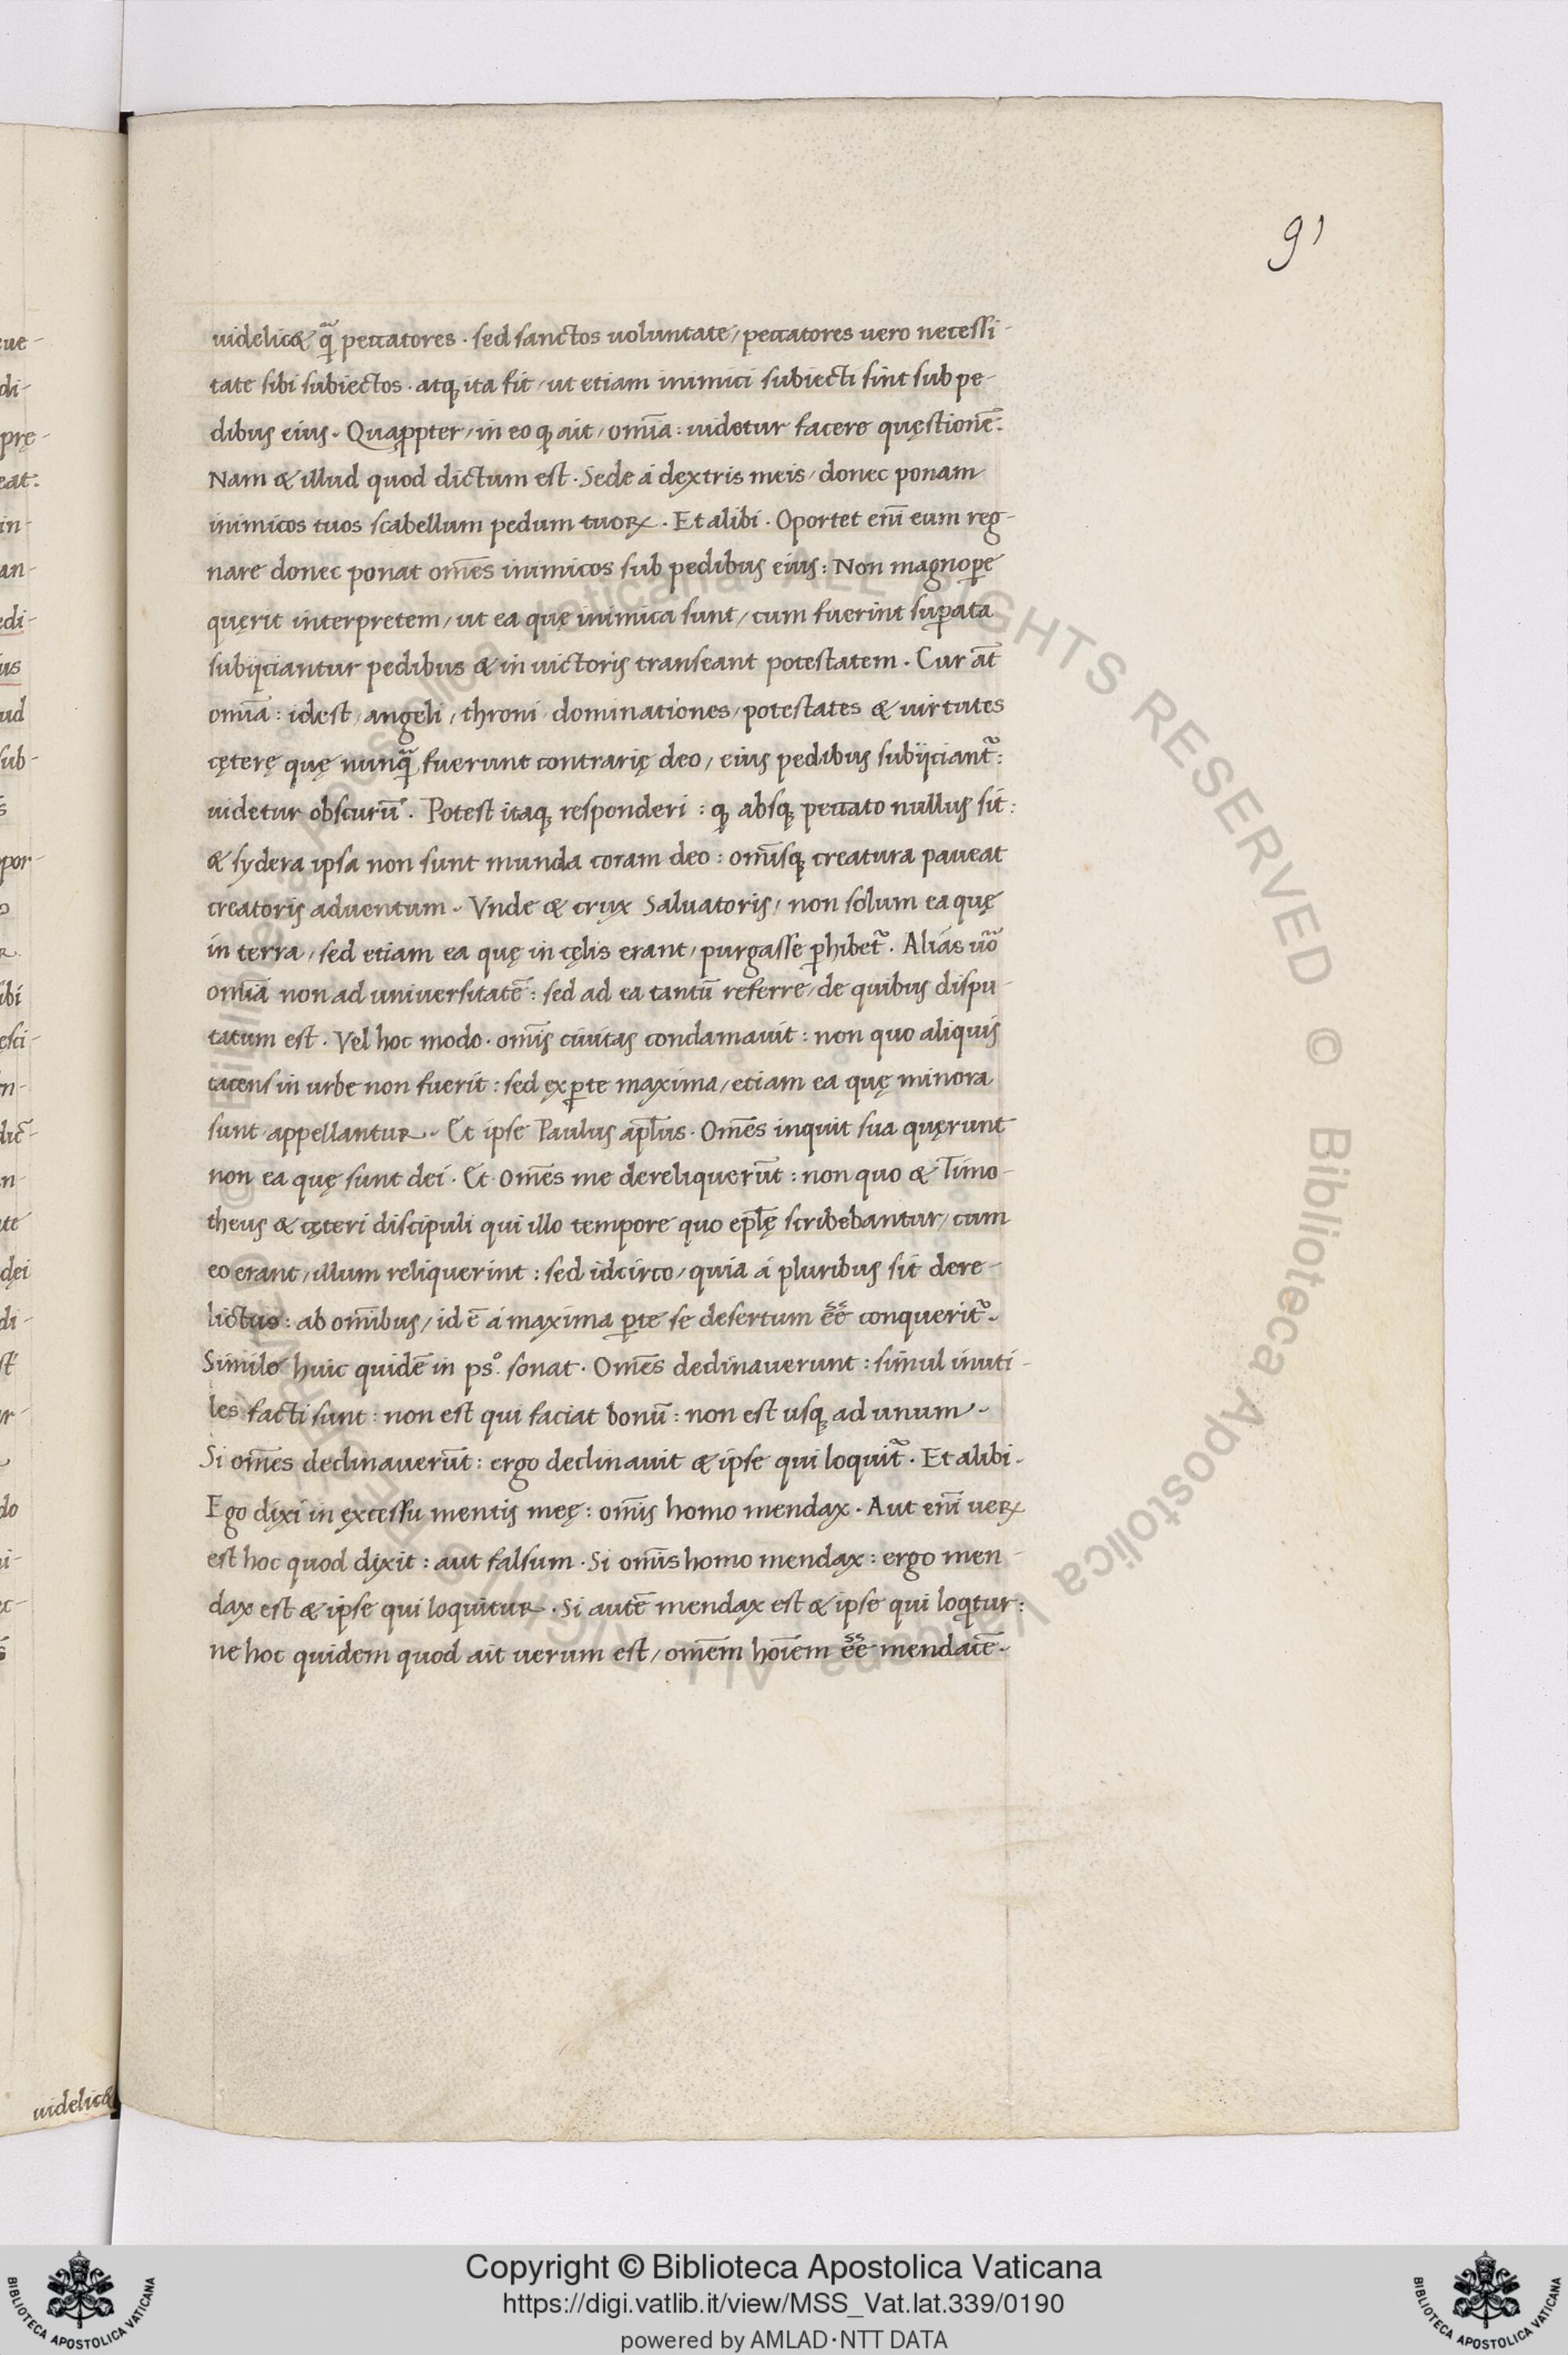 91
uidelicet q̃ꝫ peccatores · sed sanctos uoluntate / peccatores uero necessi-
tate sibi subiectos · atq; ita fit / ut etiam inimici subiecti sint sub pe-
dibus eius · Quapropter / in eo q; ait / om̄ia : uidetur facere quęstionē :
Nam & illud quod dictum est · Sede á dextris meis / donec ponam
inimicos tuos scabellum pedum tuoꝝ · Et alibi · Oportet enī eum reg-
nare donec ponat om̄es inimicos sub pedibus eius : Non magnoꝑe
quęrit interpretem / ut ea quę inimica sunt / cum fuerint suꝑata
subijciantur pedibus & in uictoris transeant potestatem · Cur āt
om̄ia : idest / angeli / throni / dominationes / potestates & uirtutes
cęterę quę nunq̃ꝫ fuerunt contrarię deo / eius pedibus subijciant᷑ :
uidetur obscurū · Potest itaq; responderi : q; absq; peccato nullus sit :
& sydera ipsa non sunt munda coram deo : om̄isq; creatura paueat
creatoris aduentum · Vnde & crux Saluatoris / non solum ea quę
in terra / sed etiam ea quę in cęlis erant / purgasse ꝑhibet᷑ · Aliás ũo
om̄ia non ad uniuersitatē : sed ad ea tantū referre / de quibus dispu-
tatum est · Vel hoc modo · om̄is ciuitas conclamauit : non quo aliquis
tacens in urbe non fuerit : sed ex ꝑte maxima / etiam ea quę minora
sunt appellantur · Et ipse Paulus apl̄us · Om̄es inquit sua quęrunt
non ea quę sunt dei · Et Om̄es me dereliquerūt : non quo & Timo-
theus & cęteri discipuli qui illo tempore quo epl̄ę scribebantur / cum
eo erant / illum reliquerint : sed idcirco / quia á pluribus sit dere-
lictus : ab om̄ibus / id ē á maxima ꝑte se desertum eē̄ conquerit᷑ ·
Simile huic quidē in psº. sonat · Om̄es declinauerunt : simul inuti-
les facti sunt : non est qui faciat bonū : non est usq; ad unum ·
Si om̄es declinauerūt : ergo declinauit & ipse qui loquit᷑ · Et alibi ·
Ego dixi in excessu mentis meę : om̄is homo mendax · Aut enī ueꝝ
est hoc quod dixit : aut falsum · Si om̄is homo mendax : ergo men-
dax est & ipse qui loquitur · Si autē mendax est & ipse qui loqtur :
ne hoc quidem quod ait uerum est / om̄em hoīem eē̄ mendacē ·
uidelicet
Copyright © Biblioteca Apostolica Vaticana
https://digi.vatlib.it/view/MSS_Vat.lat.339/0190
powered by AMLAD·NTT DATA
BIBLIOTECA APOSTOLICA VATICANA
BIBLIOTECA APOSTOLICA VATICANA
© Biblioteca Apostolica Vaticana ALL RIGHTS RESERVED © Biblioteca Apostolica Vaticana ALL RIGHTS RESERVED